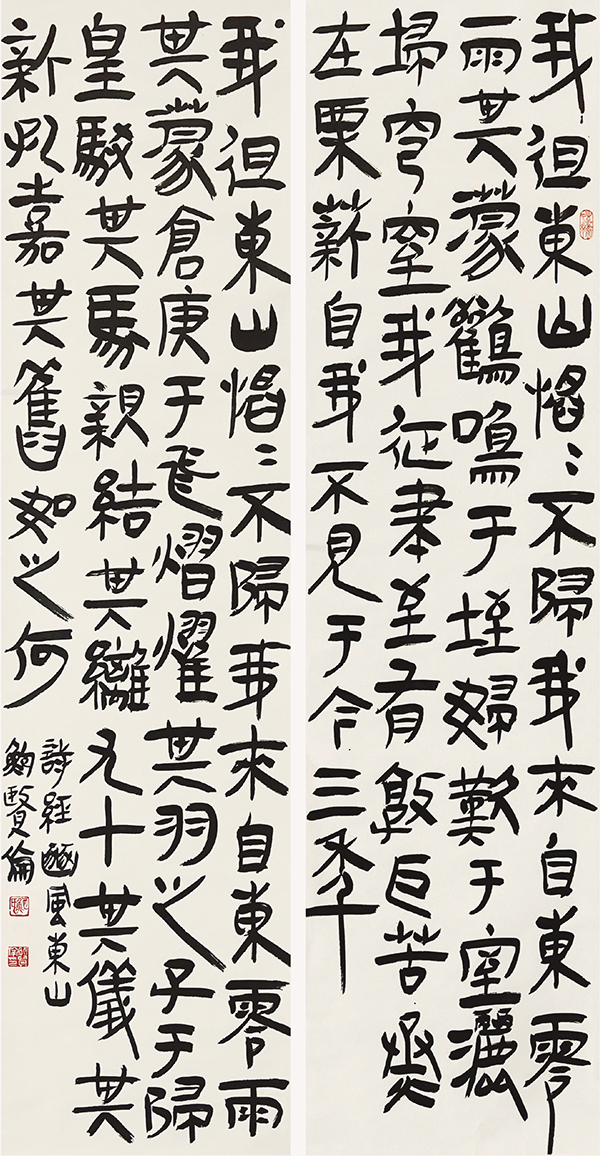 我徂東山慆〻不歸我來自東零
雨其蒙鸛鳴于垤婦歎于室灑
埽穹窒我征聿至有敦瓜苦烝
在栗薪自我不見于今三年
我徂東山慆〻不歸我來自東零雨
其蒙倉庚于飛熠燿其羽之子于歸
皇駁其馬親結其縭九十其儀其
新孔嘉其舊如之何
詩經豳風東山
鮑賢倫